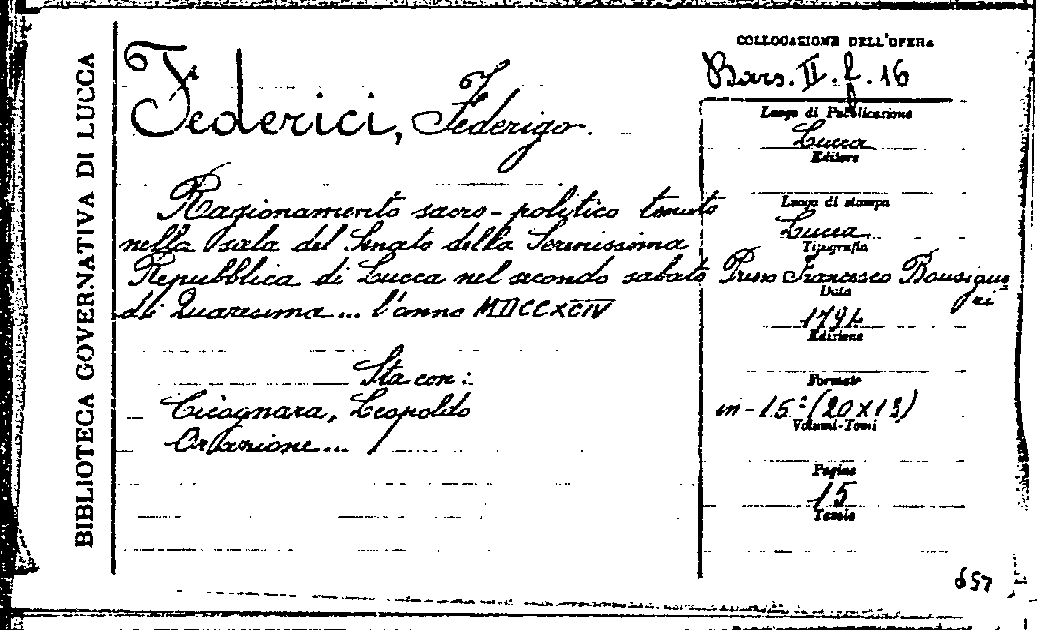 BIBLIOTECA GOVERNATIVA DI LUCCA
Federici, Federigo.
Ragionamento sacro-politico tenuto
nella sala del Senato della Serenissima
Repubblica di Lucca nel secondo sabato
di Quaresima... l'anno MDCCXCIV
Sta con:
Cicognara, Leopoldo
Orazione...
COLLOCAZIONE DELL'OPERA
Bars. II. f. 16
Luogo di Pubblicazione
Lucca
Editore
Luogo di stampa
Lucca
Tipografia
Presso Francesco Bonsignori
Data
1794
Edizione
Formato
in-15º (20x13)
Volumi-Tomi
Pagine
15
Tavole
657